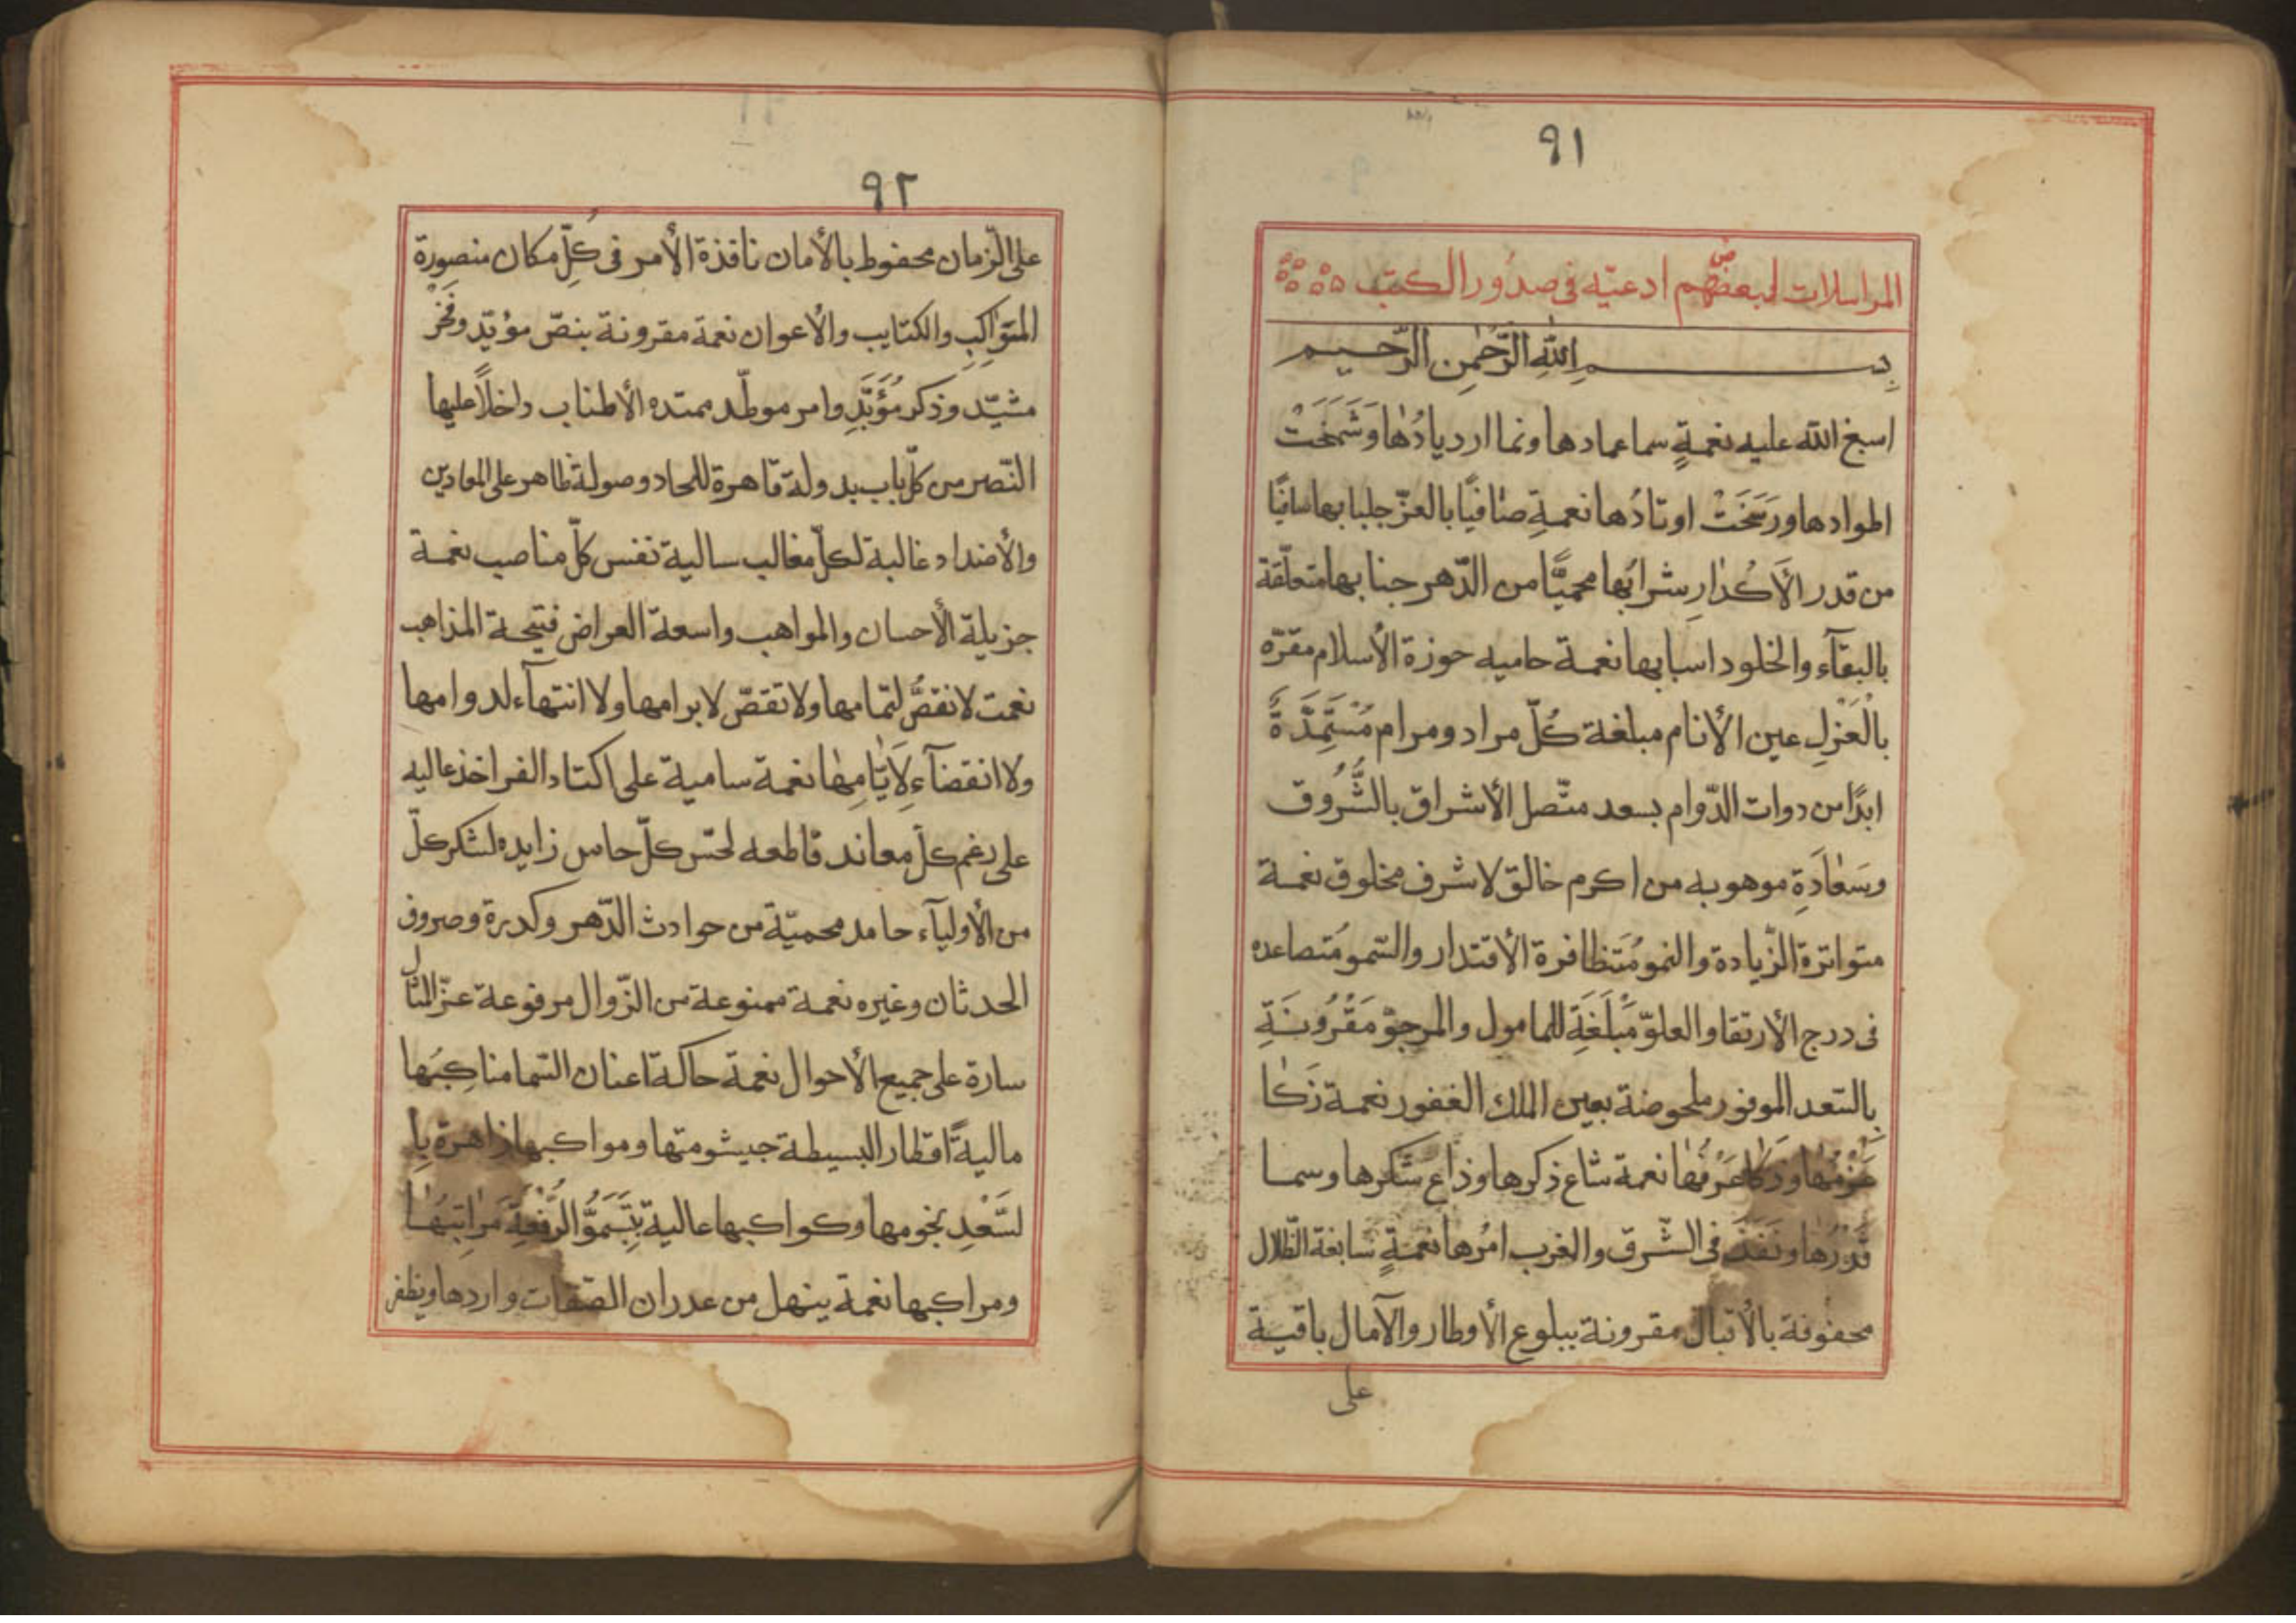 ٩١
المراسلات لبعضهم ادعيّه فى صدُور الكتب
بِســـــمِ اللهِ الرَّحْمٰنِ الرَّحـيـم
اسبغ الله عليه نعمةٍ سما عمادها ونما ازديادُها وَشَمَخَتْ
اطوادها ورَسَخَتْ اوتادُها نعمةِ صٰافيًا بالعزّ جلبابها سافيًا
من قدر الأَكْدٰارِ شرابُها محميًّا من الدّهر جنابها متعلّقة
بالبقآء والخلود اسبابها نعمة حاميه حوزة الأسلام مقرّه
بالْعَزْلِ عين الأنام مبلغة كُلّ مراد ومرام مُسْتَمِّدَّةً
ابدًا من دوات الدّوام بسعد متّصل الأشراق بالشُّرُوق
وسَعٰادَةِ موهوبه من اكرم خالق لاشرف مخلوق نعمة
متواترة الزّيادة والنمو مُتَظافرة الأقتدار والسّمو مُتصاعده
فى درج الأرتقا والعلوّ مُبْلَغَةِ للمامول والمرجوّ مَقْرُونَةِ
بِالسّعد الموفور ملحوضة بعين الملك الغفور نعمة زَكٰا
عَرْفُهٰا وذكٰا عَرْفُهٰا نعمة شاع ذكرها وذاع شكرها وسما
قَدْرُها ونَفَذَ فى الشّرق والغرب امرُها نعمةٍ سابغة الظّلال
محفوفة بالأقبال مقرونة ببلوع الأوطار والآمال باقية
على
٩٢
على الزمان محفوظ بالأمان نافذة الأمر فى كُلِّ مكان منصورة
المَوَاكِبِ والكتايب والأعوان نعمة مقرونة بنصّ مؤيّد وفَخْرٍ
مشيّد وذكر مُؤَبَّدِ وامر موطّد ممتده الأطناب داخلاً عليها
النّصر من كلّ باب بدولة قاهرة للحاد وصولة ظاهر على المعادين
والأضداد غالبة لكلّ مغالب سالية نفس كلّ مناصب نعمة
جزيلة الأحسان والمواهب واسعة العراض فتيحة المذاهب
نعمت لا نقصُّ لتمامها ولا تقضّ لابرامها ولا انتهآء لدوامها
ولا انقضآءِ لأَيّٰامِهٰا نعمة سامية على اكتاد الفراخذ عاليه
على رغم كلّ معاند قاطعه لحسّ كلّ حاس زايده لشكر كلّ
من الأوليآء حامد محميّة من حوادث الدّهر وكدرة وصروف
الحدثان وغيره نعمة ممنوعة من الزّوال مرفوعة عزّ المنال
سارة على جميع الأحوال نعمة حاكة اعنان السّما مناكِبُها
ماليةً اقطار البسيطة جيشومتها ومواكبها زاهرة بِا
لسَّعْدِ نجومها وكواكبها عالية بِتَسَمُّو الرِّفْعَةِ مَرٰاتِبُهٰا
ومراكبها نعمة ينهل من عدران الصّفات واردها ويظفر